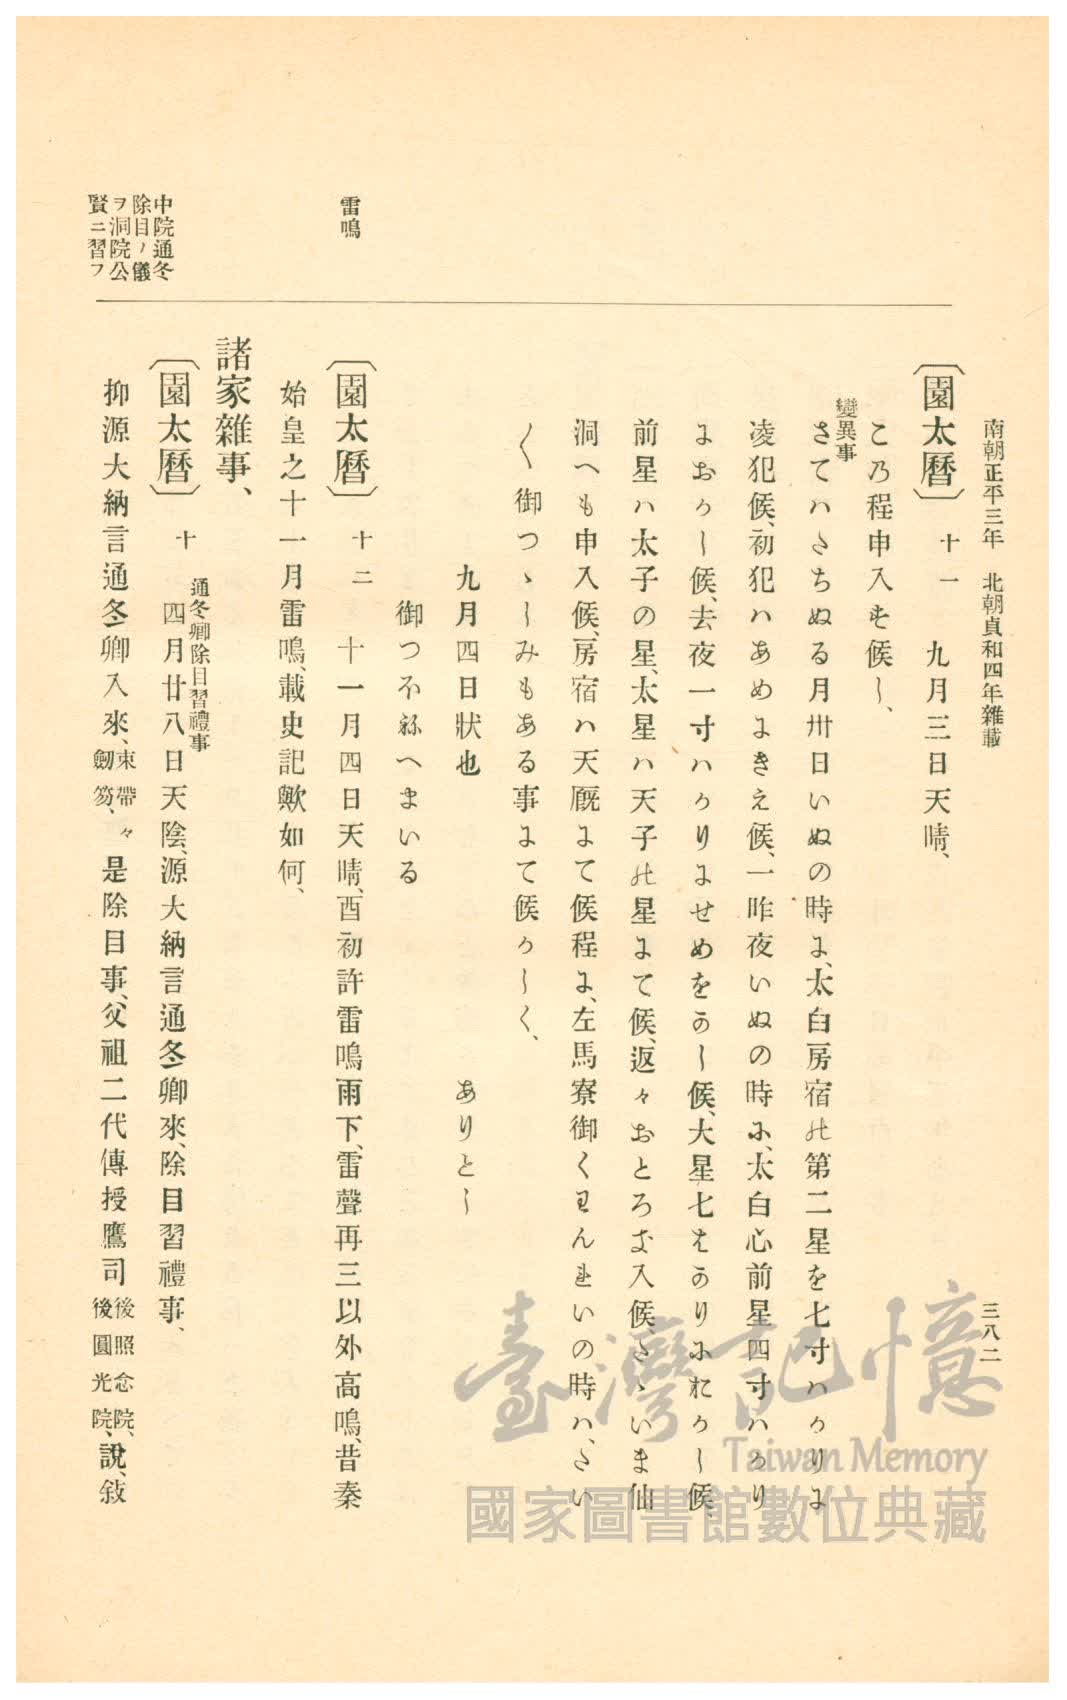 南朝正平三年　北朝貞和四年雜載
三八二
〔園太曆〕 十一　九月三日天晴、
この程申入を候し、
變異事
さてハさちぬる月卅日いぬの時に、太白房宿の第二星を七寸ハかりに
凌犯候、初犯ハあめにきえ候、一昨夜いぬの時に、太白心前星四寸ハかり
におかし候、去夜一寸ハかりにせめをかし候、大星七
前星ハ太子の星、太星ハ天子の星にて候、返々おとろき入候、さゝいま仙
洞へも申入候、房宿ハ天厩にて候程に、左馬寮御くわんれいの時ハ、さい
〱御つゝしみもある事にて候かしく、
九月四日狀也　ありとし
御つ祢へまいる
雷鳴
〔園太曆〕 十二　十一月四日天晴、酉初許雷鳴雨下、雷聲再三以外高鳴、昔秦
始皇之十一月雷鳴、載史記歟如何、
諸家雜事、
中院通冬
除目ノ儀
ヲ洞院公
賢ニ習フ
〔園太曆〕 十
通冬卿除目習禮事
四月廿八日天陰、源大納言通冬卿來、除目習禮事、
抑源大納言通冬卿入來、束帶劒笏、々是除目事、父祖二代傳授鷹司後照念院、後圓光院、說、敍
臺灣記憶
Taiwan Memory
國家圖書館數位典藏